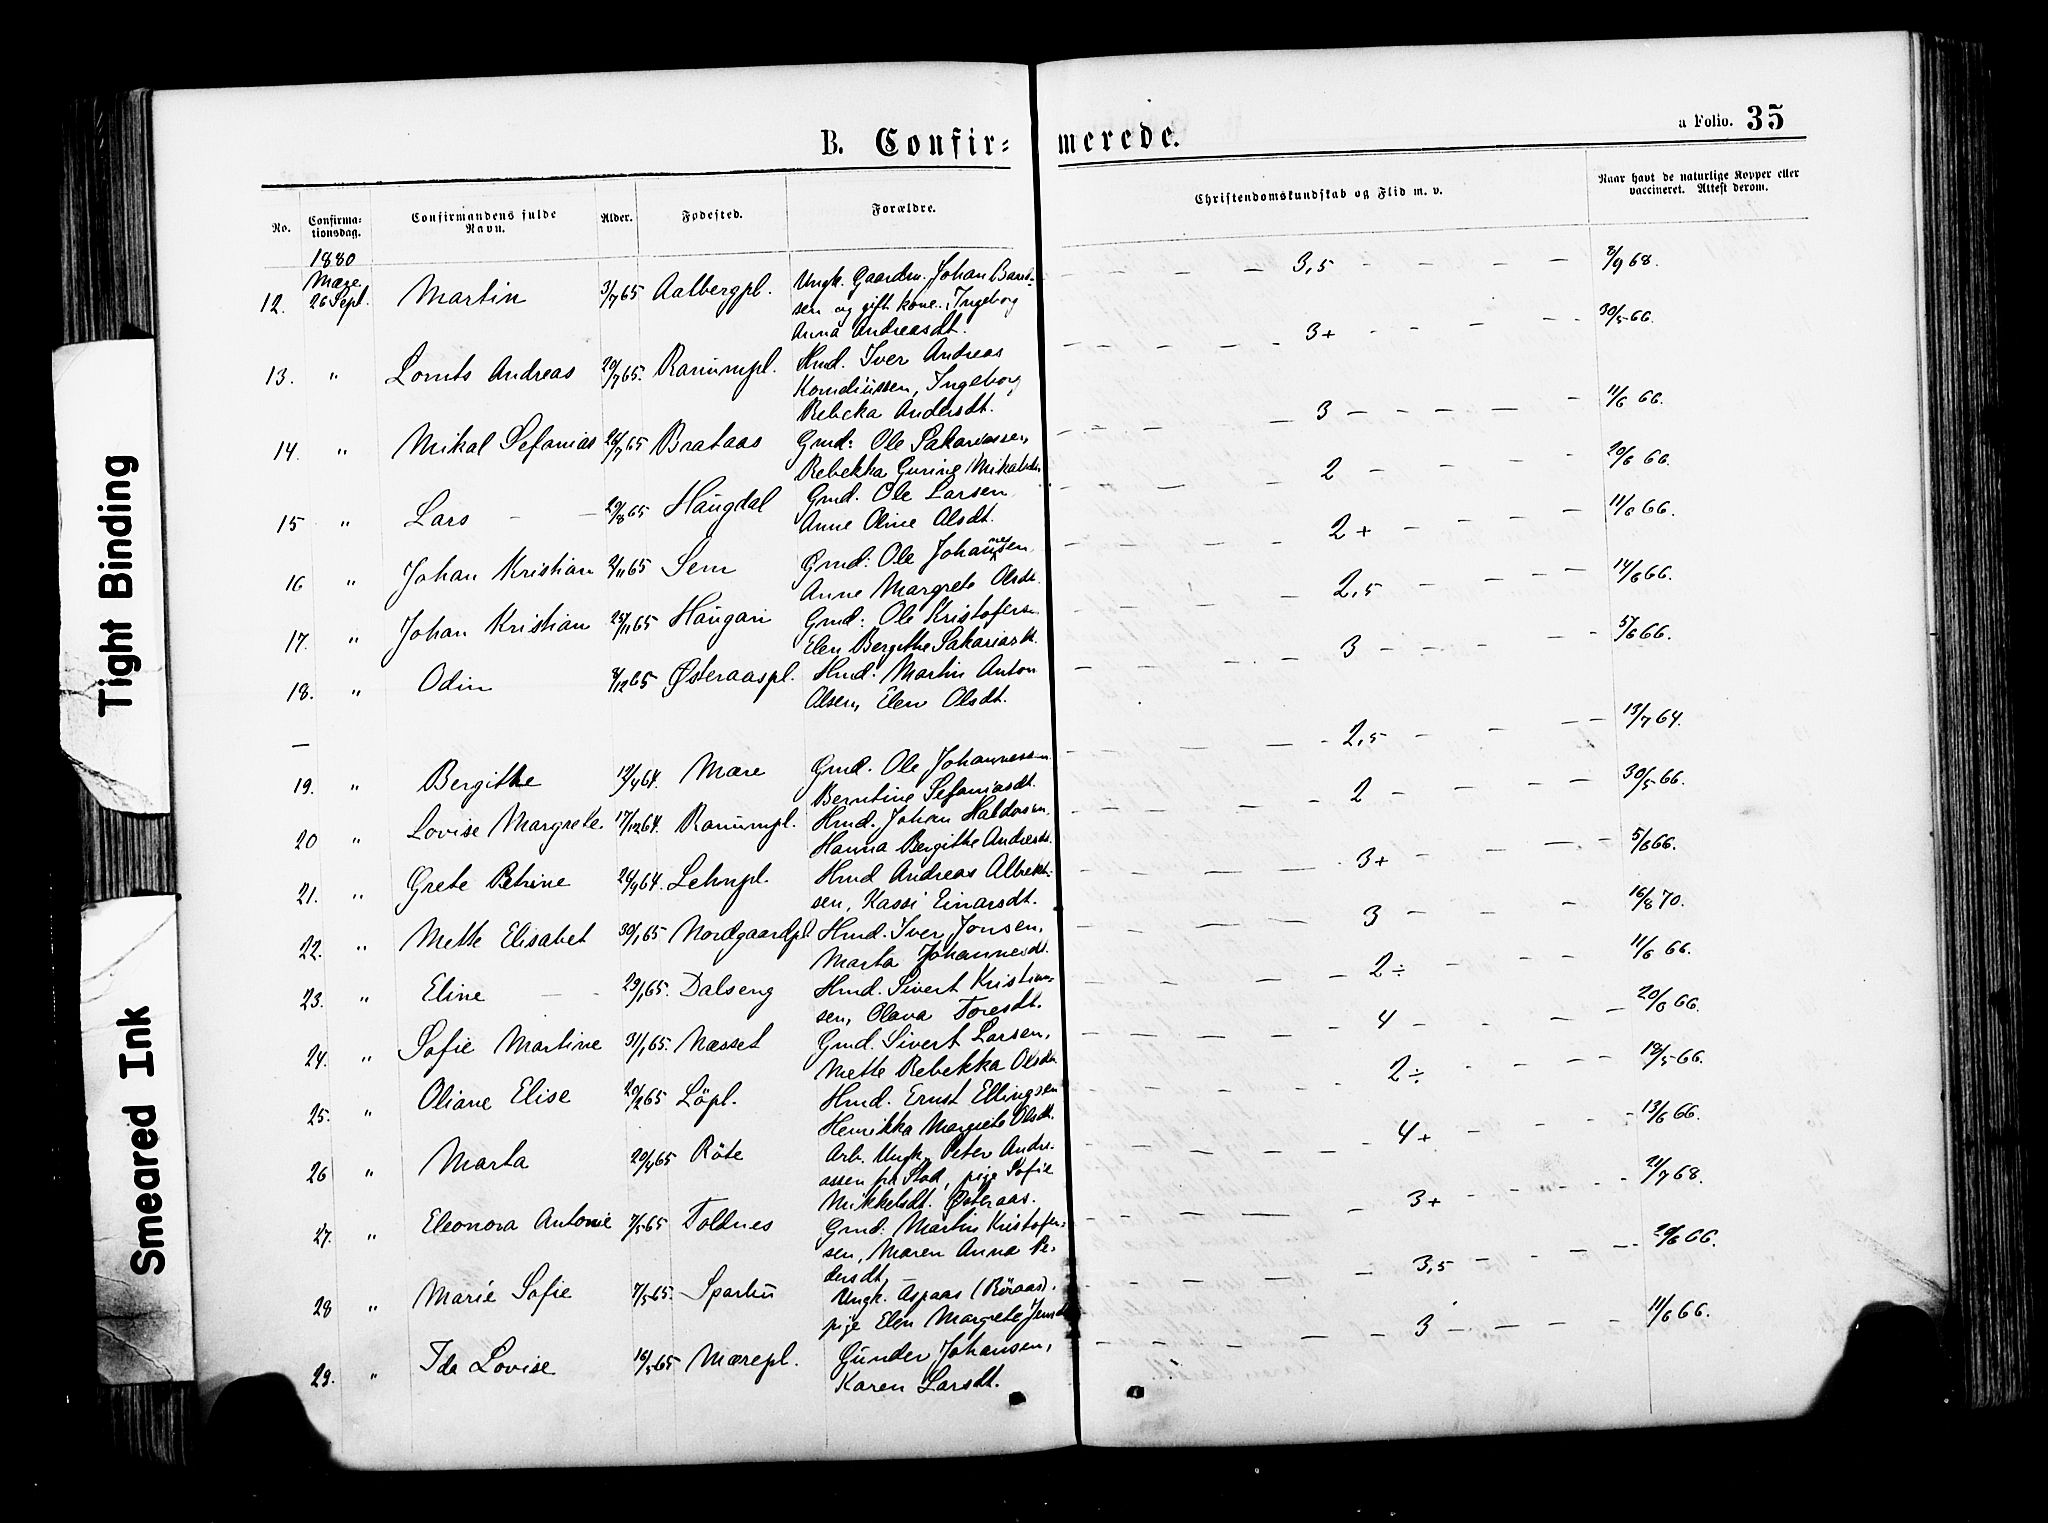 B. Confir=merede.
a Folio. 35
No.
Confirma-
tionsdag.
Confirmandens fulde
Navn.
Alder.
Fødested.
Forældre.
Christendomskundskab og Flid m. v.
Naar havt de naturlige Kopper eller
vaccineret. Attest derom.
1880
Mære
12. 26 Sept. Martin 3/7 65 Aalbergpl. Ungk. Gaardm. Johan
sen og gift kone. Ingeborg
Anna Andreasdt.
3,5 8/9 68.
13. " Lornts Andreas 20/7 65. Ranumpl. Hmd. Iver Andreas
Ingeborg
Rebeka Andersdt.
3+ 30/5 66.
14. " Mikal Sefanias 28/7 65 Brataas Gmd: Ole Sakariassen,
Rebekka Gurine
3 11/6 66.
15 " Lars 29/8 65 Haugdal Gmd. Ole Larsen
Anne Oline Olsdt.
2 20/6 66.
16 " Johan Kristian 2/11 65 Sem Gmd: Ole Johannesen
Anne Margrete Olsdt.
2+ 11/6 66.
17. " Johan Kristian 25/11 65 Haugan Gmd: Ole Kristofersn
Elen Bergithe Sakariasdt.
2,5 14/6 66.
18. " Odin 8/12 65 Østeraaspl. Hmd. Martin Anton
Olsen, Elen Olsdt.
3 5/6 66.
—
19. " Bergithe 12/4 64. Mære Gmd. Ole Johannessen
Berntine Sefaniasdt.
2,5 13/7 64.
20 " Lovise Margrete 17/12 64. Ranumpl. Hmd. Johan Haldosen
Hanna Bergithe Andreasdt.
2 30/5 66.
21. " Grete Petrine 24/9 64. Lehnpl. Hmd Andreas Albrekt-
sen, Kassi Einarsdt.
3+ 5/6 66.
22. " Mette Elisabet 30/1 65 Nordgaardpl. Hmd. Iver Jonsen,
Marta Johannesdt.
3 16/8 70.
23. " Eline 29/1 65. Dalseng Hmd. Sivert Kristian-
sen, Olava Toresdt.
2÷ 11/6 66.
24. " Sofie Martine 31/1 65. Næsset Gmd. Sivert Larsen,
Mette Rebekka Olsdt.
4 20/6 66.
25. " Oliane Elise 20/2 65 Löpl. Hmd. Ernst Ellingsen
Henrikka Margrete Olsdt.
2÷ 18/5 66.
26 " Marta 20/4 65 Röte Arb. Ungk. Peter Andre-
assen fra Stod, pige Sofie
Mikkelsdt. Østeraas.
4+ 13/6 66.
27. " Eleonora Antonie 7/5 65 Foldnes Gmd. Martin Kristofer-
sen, Maren Anna Pe-
dersdt.
3+ 21/7 68.
28 " Marie Sofie 7/5 65. Sparbu Ungk. Aspaas (Röraas),
pige Elen Margrete
3,5 20/6 66.
29. " Ida Lovise 16/5 65 Mærepl. Gunder Johansen,
Karen Larsdt.
3 11/6 66.
Tight Binding
Smeared Ink